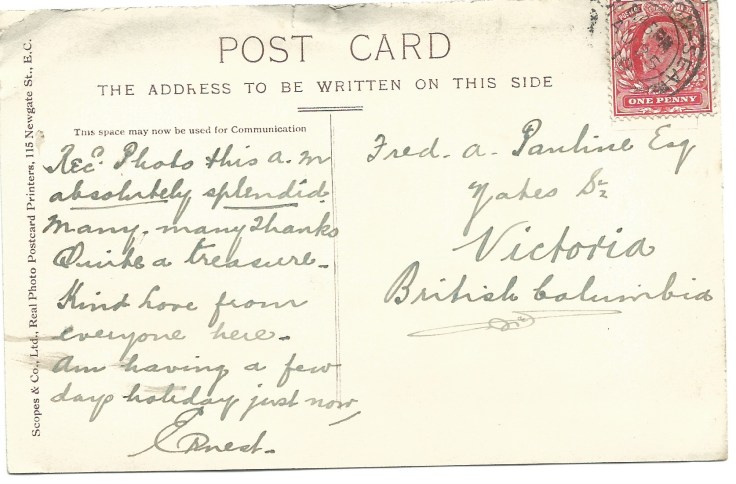 POST CARD
THE ADDRESS TO BE WRITTEN ON THIS SIDE
ONE PENNY
Scopes & Co., Ltd., Real Photo Postcard Printers, 115 Newgate St., E.C.
This space may now be used for Communication
Recd. Photo this a.m
absolutely splendid.
Many, many Thanks
Quite a treasure.
Kind love from
everyone here.
Am having a few
days holiday just now,
Ernest.
Fred. A. Pauline Esq
Yates St
Victoria
British Columbia